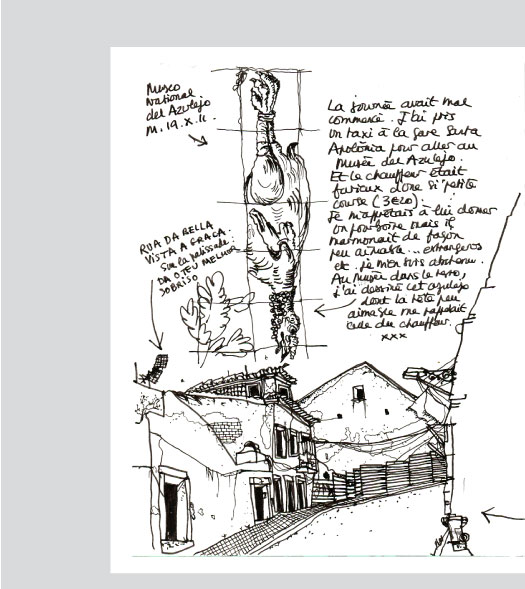 Museo
National
del Azulejo
M. 19.X.11.
La journée avait mal
commencé. J'ai pris
un taxi à la gare Santa
Apolónia pour aller au
Musée del Azulejo.
Et le chauffeur était
furieux d'une si petite
course (3€20).
Je m'apprêtais à lui donner
un pourboire mais il
marmonait de façon
peu aimable... estrangeros
etc. je m'en suis abstenu.
Au Musée dans le resto,
j'ai dessiné cet azulejo
dont la tête peu
aimable me rappelait
celle du chauffeur.
xxx
RUA DA BELLA
VISTA A GRACA.
Sur la palissade:
DA O TEU MELHOR
SORRISO